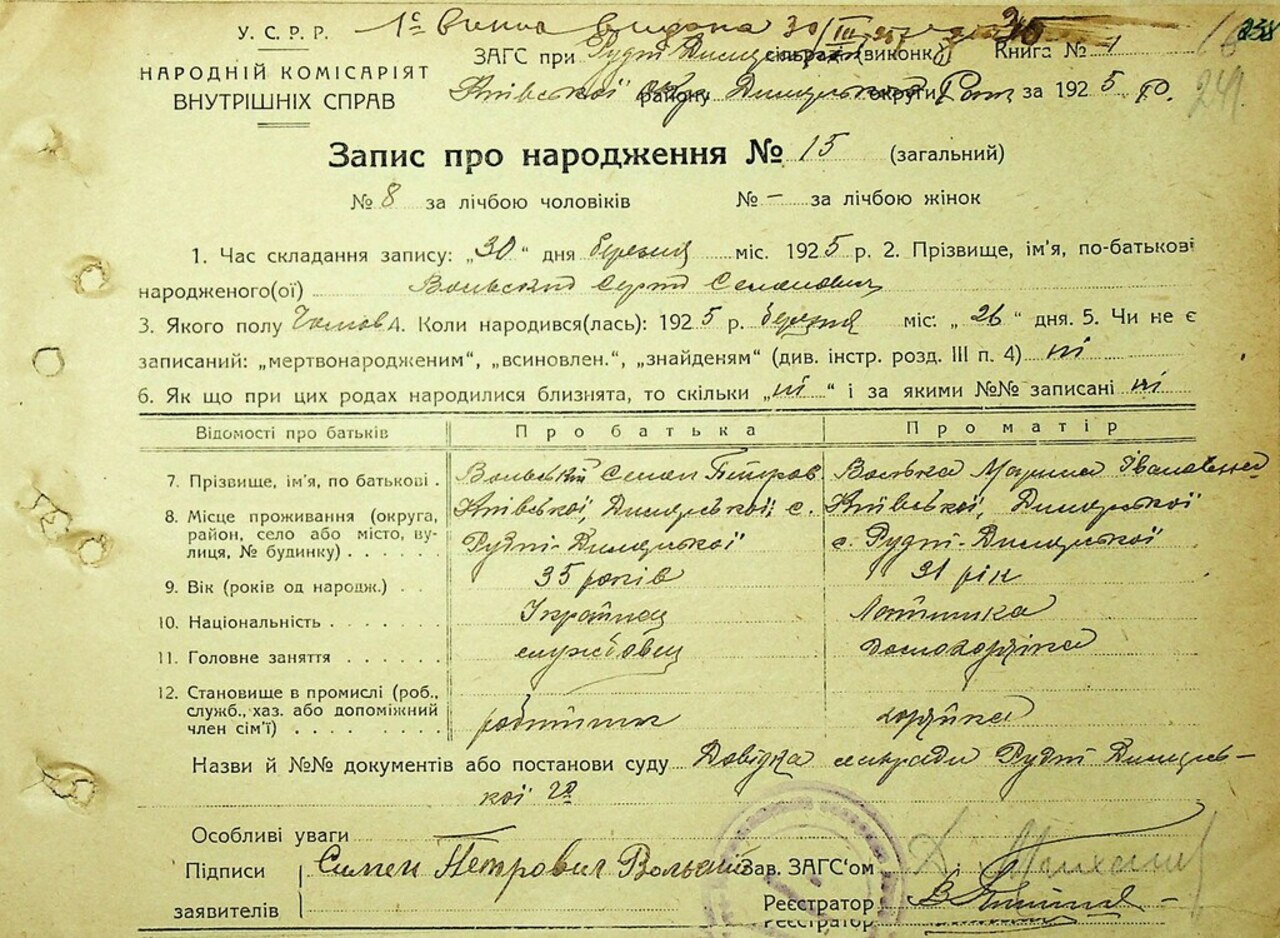 У. С. Р. Р.
НАРОДНІЙ КОМІСАРІЯТ
ВНУТРІШНІХ СПРАВ
1є 30/III 25
ЗАГС при Рудні Димерській сільраді (виконк) Книга № 1
238
241
Київської Окр. району Димерського округи Рай за 1925 р.
Запис про народження № 15 (загальний)
№ 8 за лічбою чоловіків № – за лічбою жінок
1. Час складання запису: „30“ дня березня міс. 1925 р. 2. Прізвище, ім'я, по-батькові
народженого(ої) Вольский Сергій Семенович
3. Якого полу Чолов 4. Коли народився(лась): 1925 р. березня міс: „26“ дня. 5. Чи не є
записаний: „мертвонародженим“, „всиновлен.“, „знайденям“ (див. інстр. розд. III п. 4) ні
6. Як що при цих родах народилися близнята, то скільки „ні“ і за якими №№ записані ні
Відомості про батьків Про батька Про матір
7. Прізвище, ім'я, по батькові . Вольській Семен Петров. Вольська Марина Івановна
8. Місце проживання (округа, район, село або місто, вулиця, № будинку) . . . . . . Київської, Димерської, с. Рудні-Димерської Київської, Димерської с. Рудні-Димерської
9. Вік (років од народж.) . . 35 років 31 рік
10. Національність . . . . . . . Українец Латишка
11. Головне заняття . . . . . . службовец домохазяйка
12. Становище в промислі (роб., служб., хаз. або допоміжний член сім'ї) . . . . . . . . робітник хазяйка
Назви й №№ документів або постанови суду Довідка сельради Рудні Димерсь-
кої
Особливі уваги
Підписи Симен Петрович Вольский Зав. ЗАГС'ом
заявителів Реєстратор
Реєстратор